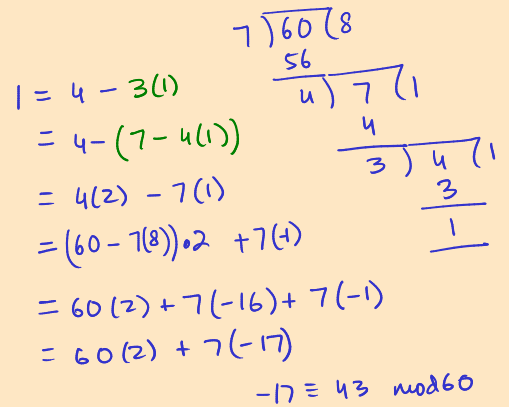 7 ) 60 ( 8
56
4 ) 7 ( 1
4
3 ) 4 ( 1
3
1
1 = 4 - 3(1)
= 4-(7-4(1))
= 4(2) - 7(1)
=(60-7(8))•2 +7(-1)
= 60(2)+7(-16)+7(-1)
= 60(2) + 7(-17)
-17 ≡ 43 mod60